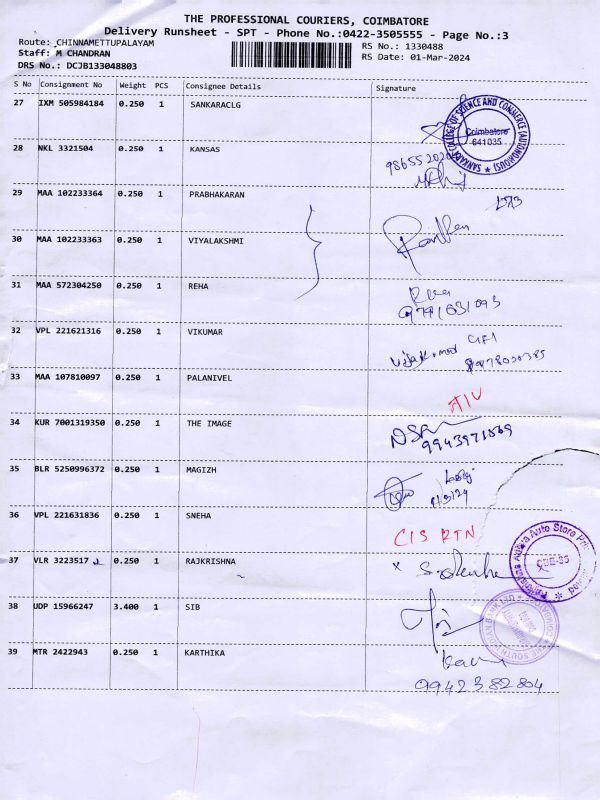 THE PROFESSIONAL COURIERS, COIMBATORE
Delivery Runsheet - SPT - Phone No.:0422-3505555 - Page No.:3
Route: CHINNAMETTUPALAYAM
RS No.: 1330488
Staff: M CHANDRAN
RS Date: 01-Mar-2024
DRS No.: DCJB133048803
S No Consignment No Weight PCS Consignee Details Signature
27 IXM 505984184 0.250 1 SANKARACLG
SANKARA COLLEGE OF SCIENCE AND COMMERCE (AUTONOMOUS)
Coimbatore
641035
28 NKL 3321504 0.250 1 KANSAS
29 MAA 102233364 0.250 1 PRABHAKARAN
30 MAA 102233363 0.250 1 VIYALAKSHMI
31 MAA 572304250 0.250 1 REHA
32 VPL 221621316 0.250 1 VIKUMAR
33 MAA 107810097 0.250 1 PALANIVEL
34 KUR 7001319350 0.250 1 THE IMAGE
9943971569
35 BLR 5250996372 0.250 1 MAGIZH
36 VPL 221631836 0.250 1 SNEHA
CIS RTN
37 VLR 3223517 0.250 1 RAJKRISHNA
CBE-35
38 UDP 15966247 3.400 1 SIB
39 MTR 2422943 0.250 1 KARTHIKA
9942382804